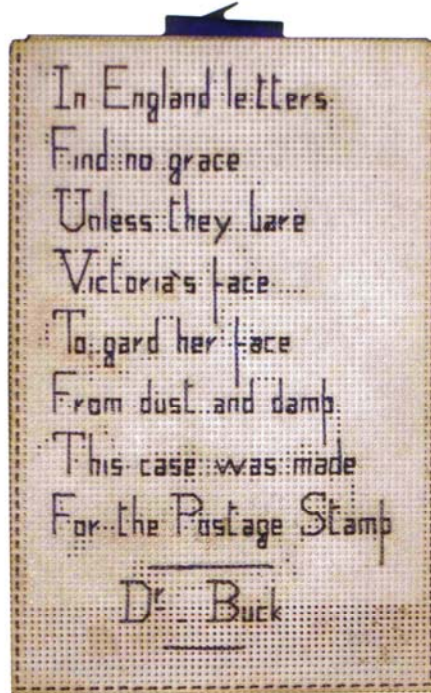 In England letters
Find no grace
Unless they bare
Victoria's face....
To gard her face
From dust and damp
This case was made
For the Postage Stamp
Dr. Buck